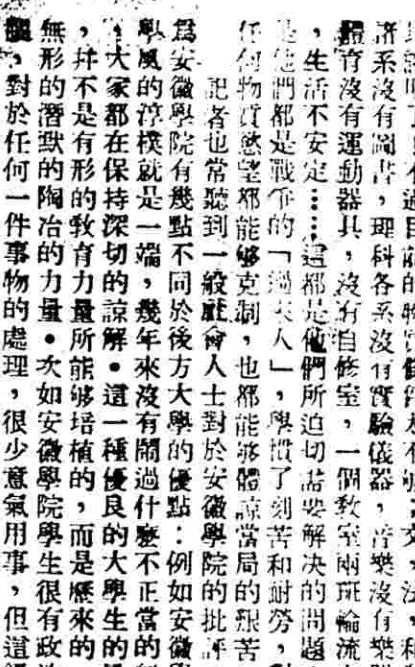 諸系沒有圖書，理科各系沒有實驗儀器，音樂沒有樂
體育沒有運動器具，沒有自修室，一個敎室兩班輪流
，生活不安定……這都是他們所迫切需要解決的問題
是他們都是戰爭的「過來人」，學慣了刻苦和耐勞，
任何物質慾望都能够克制，也都能够體諒當局的艱苦
記者也常聽到一般社會人士對於安徽學院的批評
爲安徽學院有幾點不同於後方大學的優點：例如安徽
學風的淳樸就是一端，幾年來沒有鬧過什麼不正當的
，大家都在保持深切的諒解●這一種優良的大學生的
，幷不是有形的敎育力量所能够培植的，而是歷來的
無形的潛默的陶冶的力量●次如安徽學院學生很有政
，對於任何一件事物的處理，很少意氣用事，但這